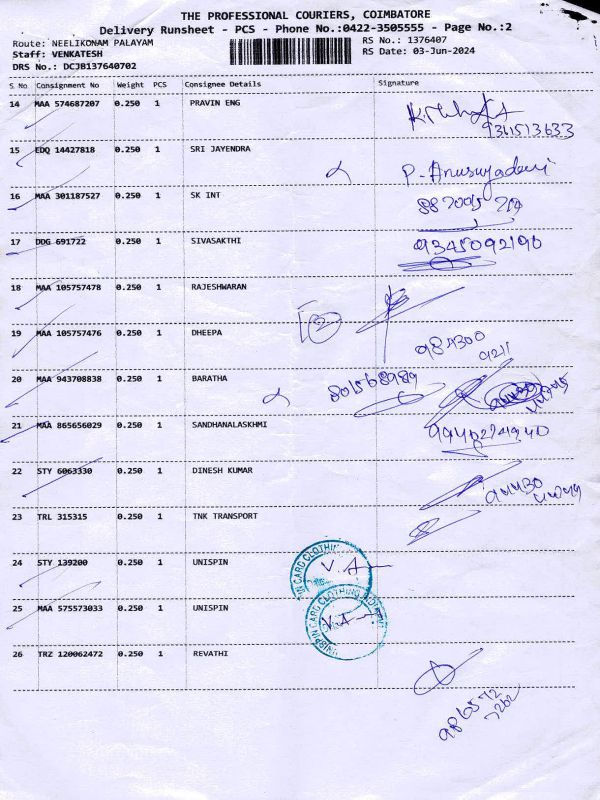 THE PROFESSIONAL COURIERS, COIMBATORE
Delivery Runsheet - PCS - Phone No.:0422-3505555 - Page No.:2
Route: NEELIKONAM PALAYAM
RS No.: 1376407
Staff: VENKATESH
RS Date: 03-Jun-2024
DRS No.: DCJB137640702
S No Consignment No Weight PCS Consignee Details Signature
14 MAA 574687207 0.250 1 PRAVIN ENG
9361513633
15 EDQ 14427818 0.250 1 SRI JAYENDRA
P. Anusuyadevi
16 MAA 301187527 0.250 1 SK INT
17 DDG 691722 0.250 1 SIVASAKTHI 9345092190
18 MAA 105757478 0.250 1 RAJESHWARAN
19 MAA 105757476 0.250 1 DHEEPA
984300
9211
20 MAA 943708838 0.250 1 BARATHA 801568989
21 MAA 865656029 0.250 1 SANDHANALASKHMI
22 STY 6063330 0.250 1 DINESH KUMAR
23 TRL 315315 0.250 1 TNK TRANSPORT
24 STY 139200 0.250 1 UNISPIN V.A
25 MAA 575573033 0.250 1 UNISPIN V.A
26 TRZ 120062472 0.250 1 REVATHI
986572
7262